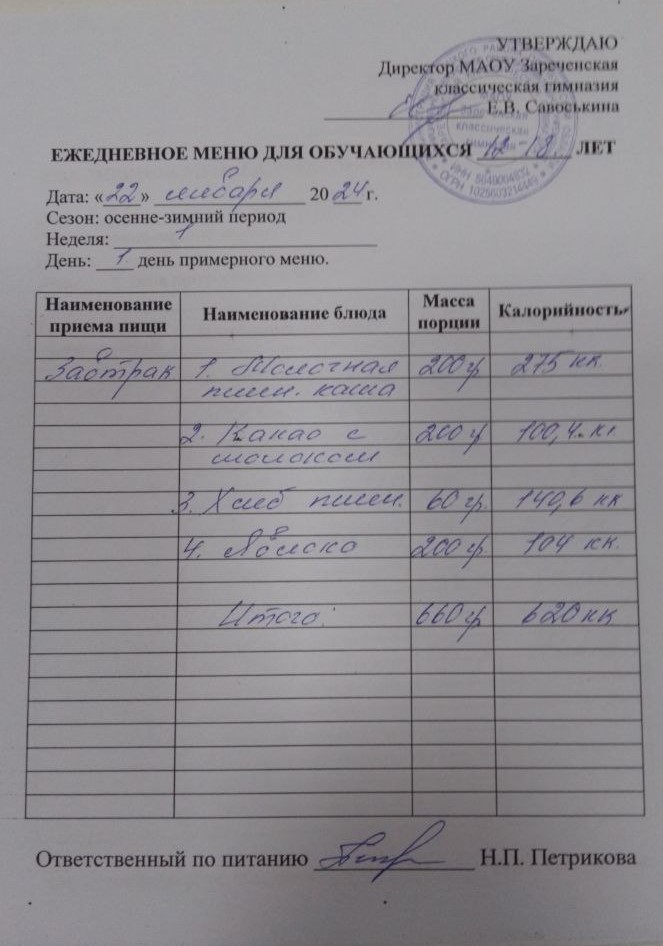 УТВЕРЖДАЮ
Директор МАОУ Зареченская
классическая гимназия
Е.В. Савоськина
ЕЖЕДНЕВНОЕ МЕНЮ ДЛЯ ОБУЧАЮЩИХСЯ 12-18 ЛЕТ
Дата: «22» января 2024 г.
Сезон: осенне-зимний период
Неделя: 1
День: 1. день примерного меню.
Наименование приема пищи Наименование блюда Масса порции Калорийность
Завтрак 1. Молочная 200 гр 275 кк
пшен. каша
2. Какао с 200 гр 100,4 кк
молоком
3. Хлеб пшен. 60 гр. 140,6 кк
4. Яблоко 200 гр. 104 кк.
Итого: 660 гр 620 кк
Ответственный по питанию Н.П. Петрикова